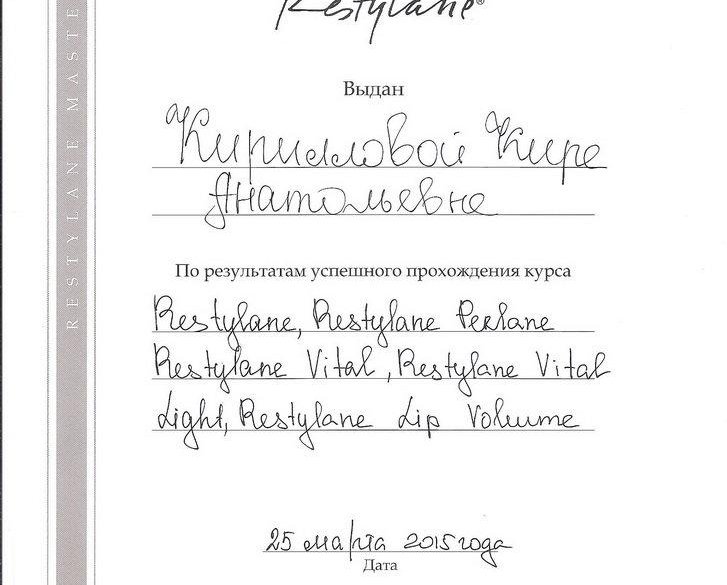 Restylane®
Выдан
Кирилловой Кире
Анатольевне
По результатам успешного прохождения курса
Restylane, Restylane Perlane
Restylane Vital, Restylane Vital
Light, Restylane Lip Volume
25 марта 2015 года
Дата
RESTYLANE MASTE